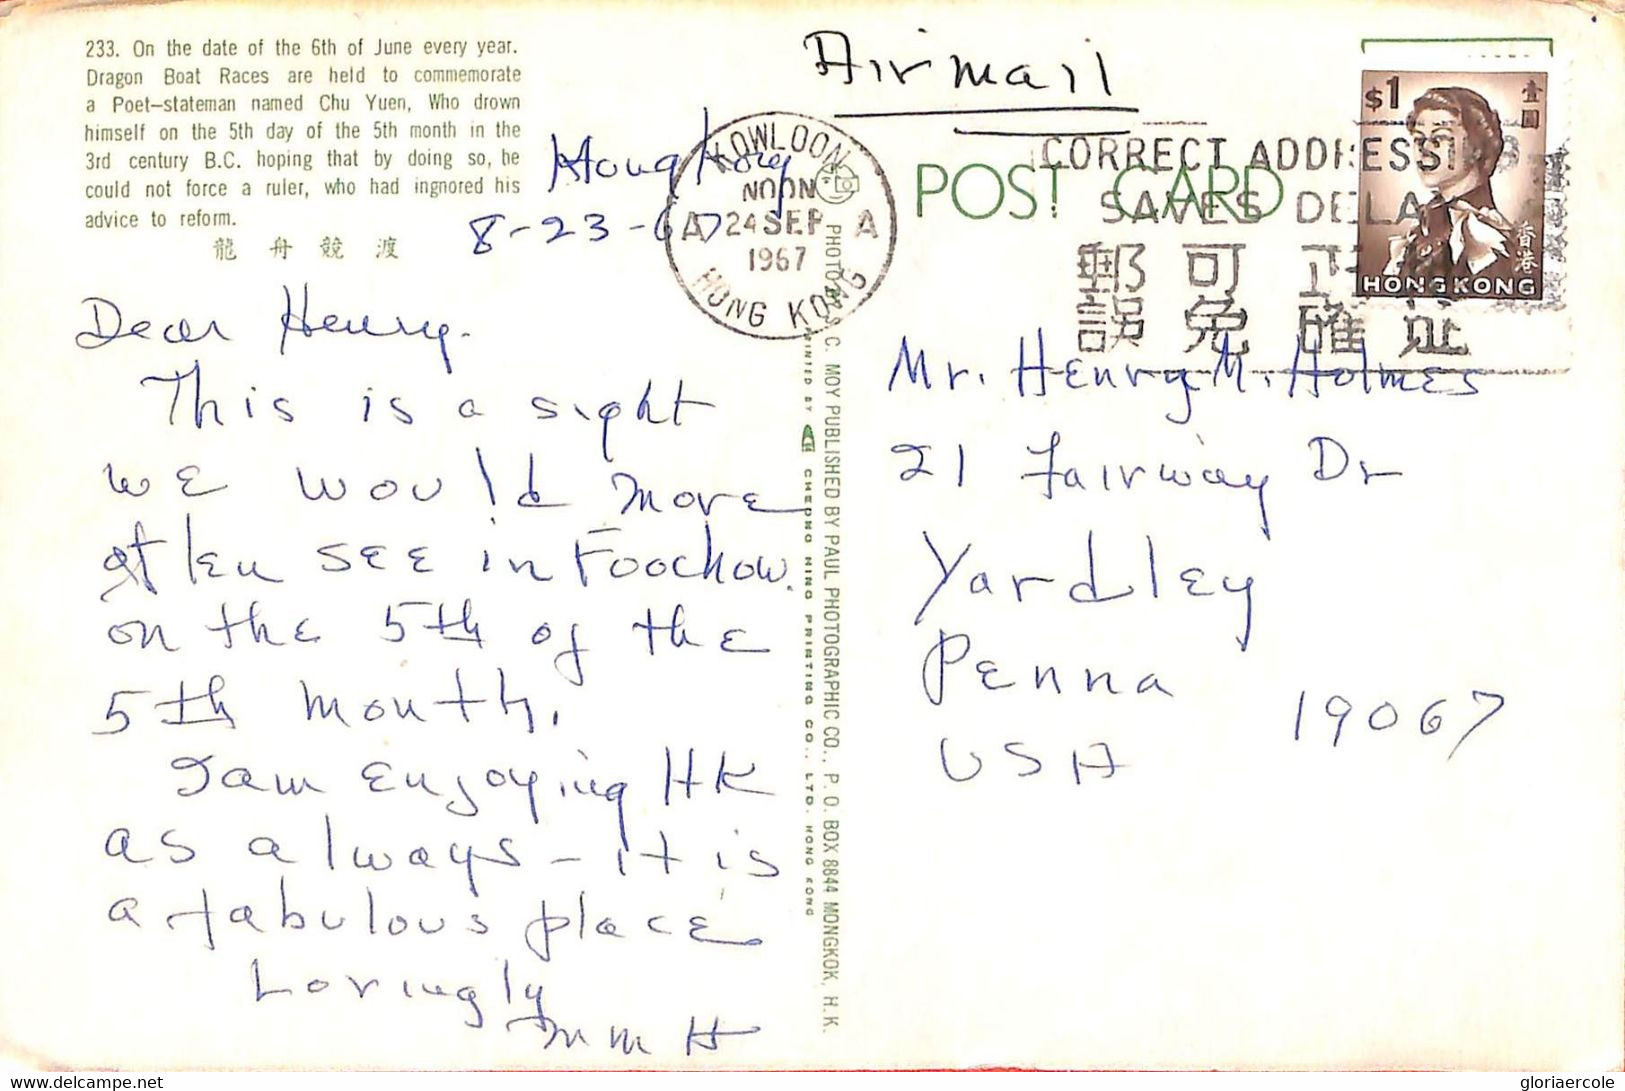 233. On the date of the 6th of June every year.
Dragon Boat Races are held to commemorate
a Poet-stateman named Chu Yuen, Who drown
himself on the 5th day of the 5th month in the
3rd century B.C. hoping that by doing so, he
could not force a ruler, who had ingnored his
advice to reform.
龍 舟 競 渡
Hong Kong
8-23-67
Dear Henry.
This is a sight
we would more
often see in Foochow.
on the 5th of the
5th month.
I am enjoying HK
as always - it is
a fabulous place
Lovingly
M M H
KOWLOON
NOON
A 24 SEP A
1967
HONG KONG
PHOTO BY S. C. MOY PUBLISHED BY PAUL PHOTOGRAPHIC CO., P. O. BOX 8844 MONGKOK, H. K.
PRINTED BY CHEONG MING PRINTING CO., LTD. HONG KONG
Airmail
POST CARD
CORRECT ADDRESSING
SAVES DELAY
郵 可 正
誤 免 確 址
$1
壹圓
香港
HONG KONG
Mr. Henry M. Holmes
21 Fairway Dr
Yardley
Penna
19067
USA
delcampe.net
gloriaercole